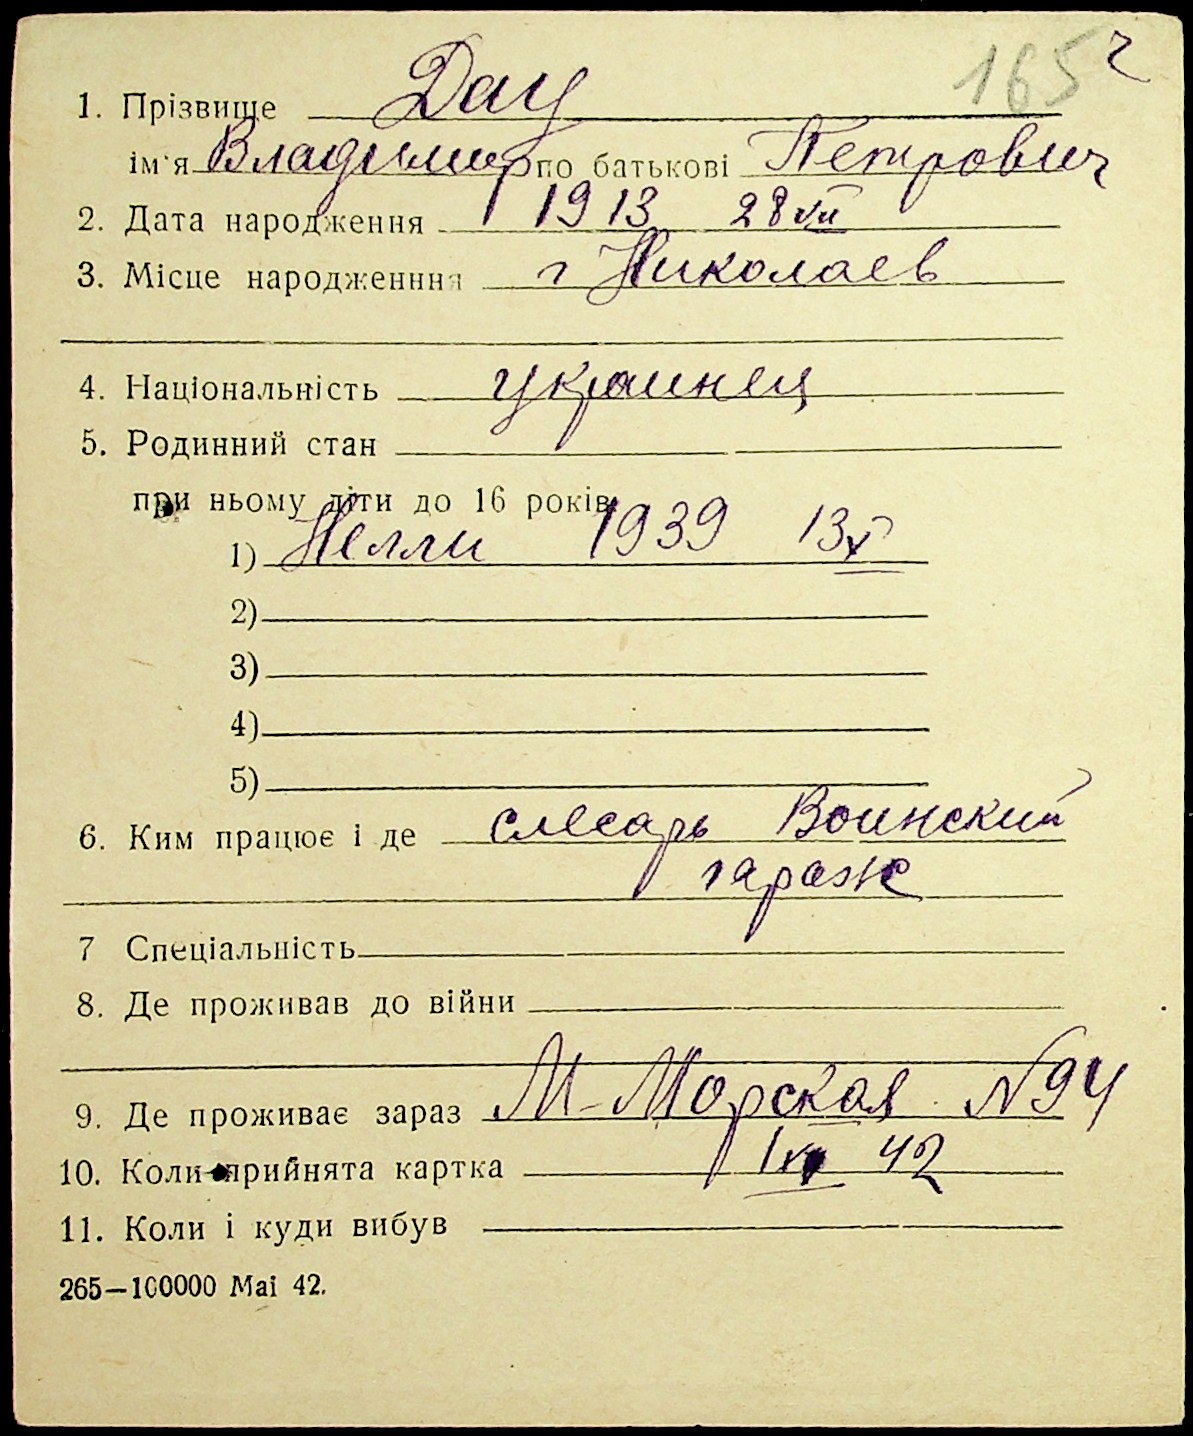 165 ч
1. Прізвище Дац
ім'я Владимир по батькові Петрович
2. Дата народження 1913 28 VII
3. Місце народженння г Николаев
4. Національність украинец
5. Родинний стан
при ньому діти до 16 років
1) Нелли 1939 13 V
2)
3)
4)
5)
6. Ким працює і де слесарь Воинский
гараж
7 Спеціальність
8. Де проживав до війни
9. Де проживає зараз М-Морская N94
10. Коли прийнята картка 1 42
11. Коли і куди вибув
265—100000 Маі 42.